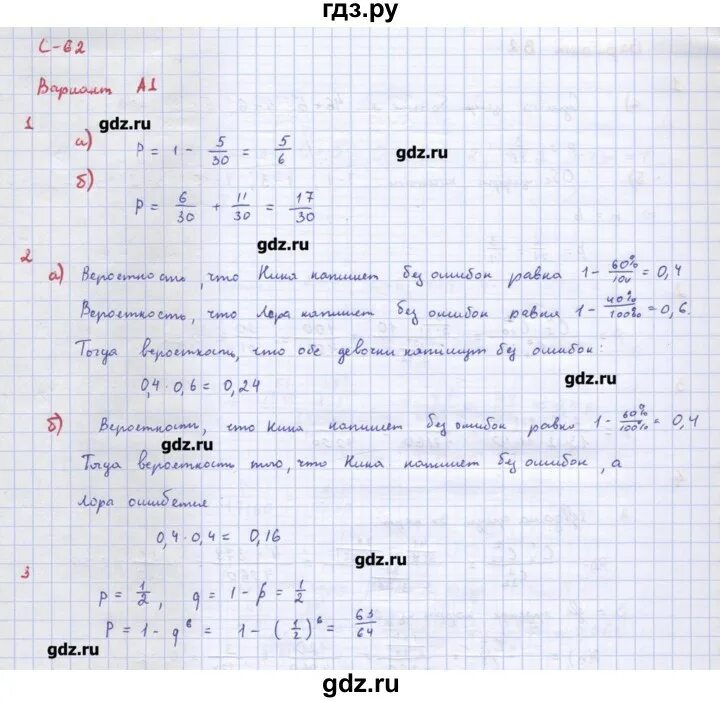 гдз.ру
С-62
Вариант А1
1
gdz.ru
а) P = 1 - 5/30 = 5/6
gdz.ru
б)
P = 6/30 + 11/30 = 17/30
gdz.ru
2
а) Вероятность, что Нина напишет без ошибок равна 1 - 60%/100 = 0,4
Вероятность, что Лора напишет без ошибок равна 1 - 40%/100% = 0,6.
Тогда вероятность, что обе девочки напишут без ошибок:
gdz.ru
0,4 · 0,6 = 0,24
б) Вероятность, что Нина напишет без ошибок равна 1 - 60%/100% = 0,4
gdz.ru
Тогда вероятность того, что Нина напишет без ошибок, а
Лора ошибется
0,4 · 0,4 = 0,16
gdz.ru
3
p = 1/2, q = 1 - p = 1/2
P = 1 - q^6 = 1 - (1/2)^6 = 63/64
gdz.ru
gdz.ru